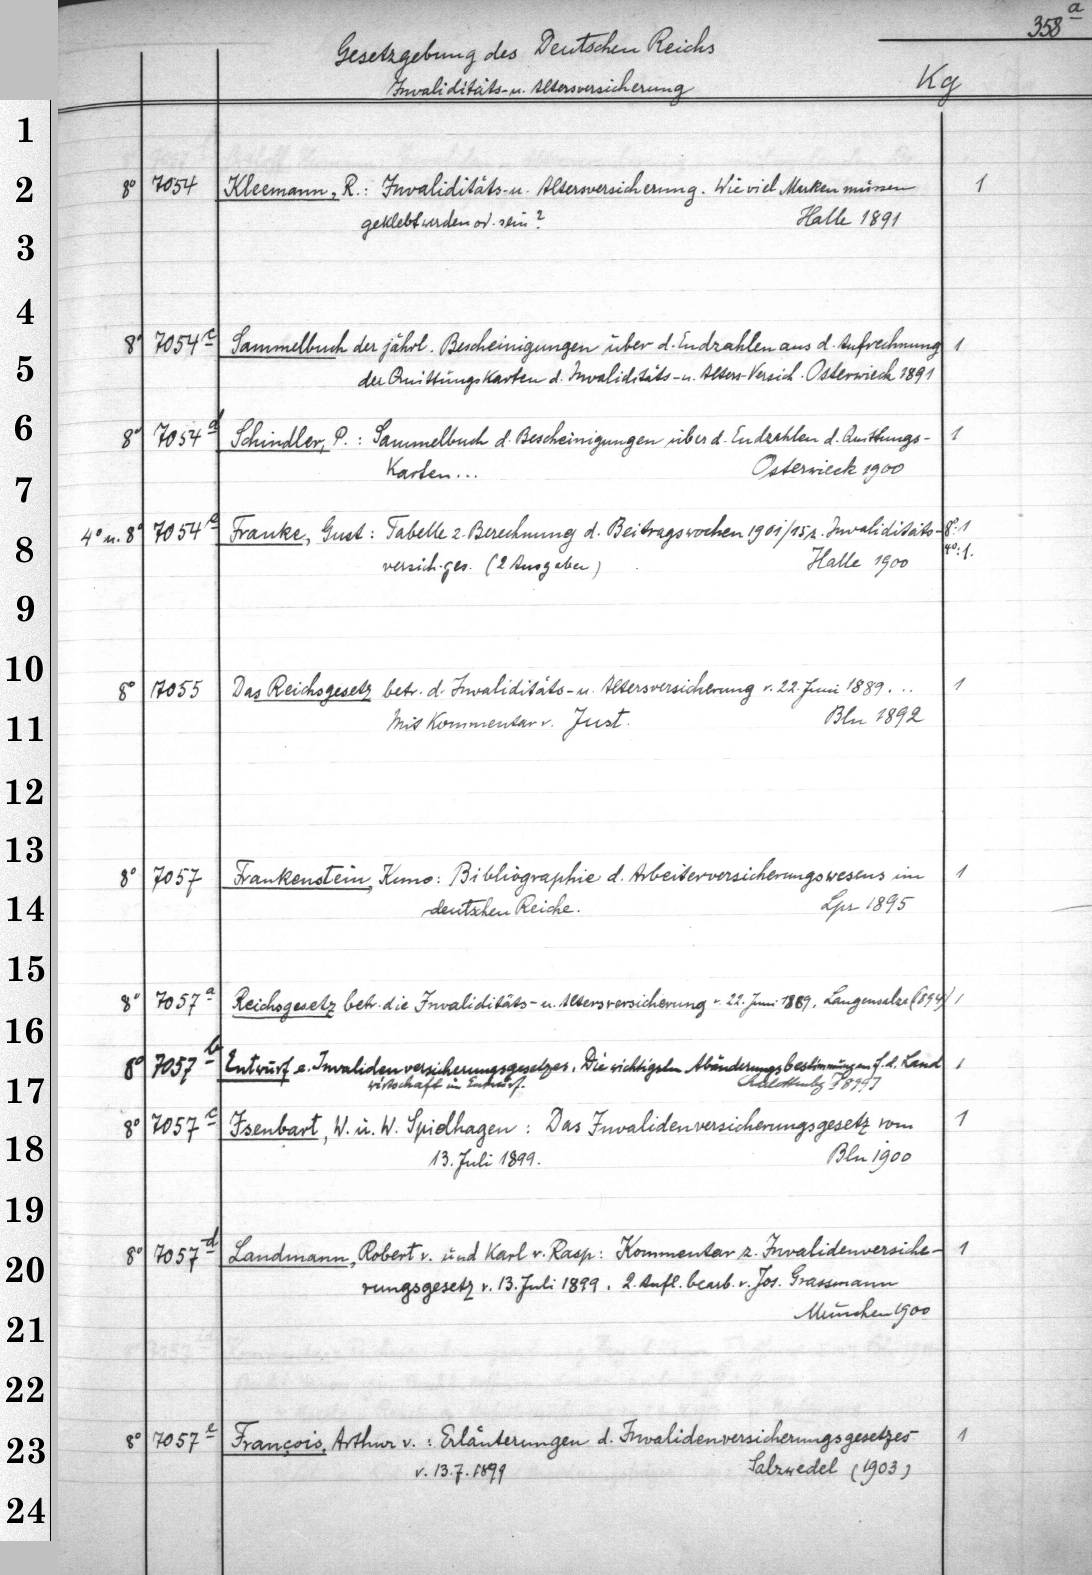 358 a
Gesetzgebung des Deutschen Reichs
Invaliditäts- u. Altersversicherung Kg
1
2 8° 7054 Kleemann, R.: Invaliditäts- u. Altersversicherung. Wie viel Marken müssen 1
geklebt werden od. sein? Halle 1891
3
4
8° 7054 c Sammelbuch der jährl. Bescheinigungen über d. Endzahlen aus d. Aufrechnung 1
5 der Quittungskarten d. Invaliditäts- u. Alters-Versich. Osterwieck 1891
6 8° 7054 d Schindler, P.: Sammelbuch d. Bescheinigungen über d. Endzahlen d. Quittungs- 1
Karten... Osterwieck 1900
7
4° u. 8° 7054 e Franke, Gust: Tabelle z. Berechnung d. Beitragswochen 1901/15 z. Invaliditäts- 8°: 1
8 4°: 1.
versich.ges. (2 Ausgaben) Halle 1900
9
10 8° 7055 Das Reichsgesetz betr. d. Invaliditäts- u. Altersversicherung v. 22. Juni 1889... 1
11 Mit Kommentar v. Just. Bln 1892
12
13
8° 7057 Frankenstein, Kuno: Bibliographie d. Arbeiterversicherungswesens im 1
14 deutschen Reiche. Lpz 1895
15
8° 7057 a Reichsgesetz betr. die Invaliditäts- u. Altersversicherung v. 22. Juni 1889. Langensalza (1894) 1
16
8° 7057 b Entwurf e. Invalidenversicherungsgesetzes. Die wichtigsten Abänderungsbestimmungen f. d. Land 1
17 wirtschaft im Entwurf. [1899]
8° 7057 c Isenbart, W. u. W. Spielhagen: Das Invalidenversicherungsgesetz vom 1
18 13. Juli 1899. Bln 1900
19
8° 7057 d Landmann, Robert v. und Karl v. Rasp: Kommentar z. Invalidenversiche- 1
20 rungsgesetz v. 13. Juli 1899. 2. Aufl. bearb. v. Jos. Grassmann
München 1900
21
22
23 8° 7057 e François, Arthur v.: Erläuterungen d. Invalidenversicherungsgesetzes 1
v. 13.7.1899 Salzwedel (1903)
24